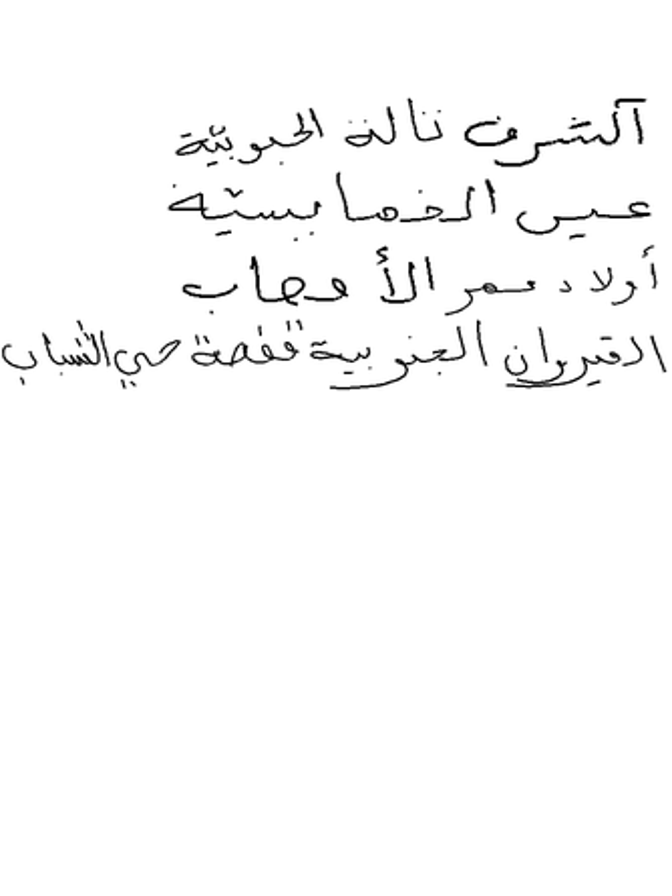 الشرف نالة الحبوبيّة
عيس الخمايسيّة
أولاد عمر الأوصاب
القيروان الجنوبية قفصة حي الشباب